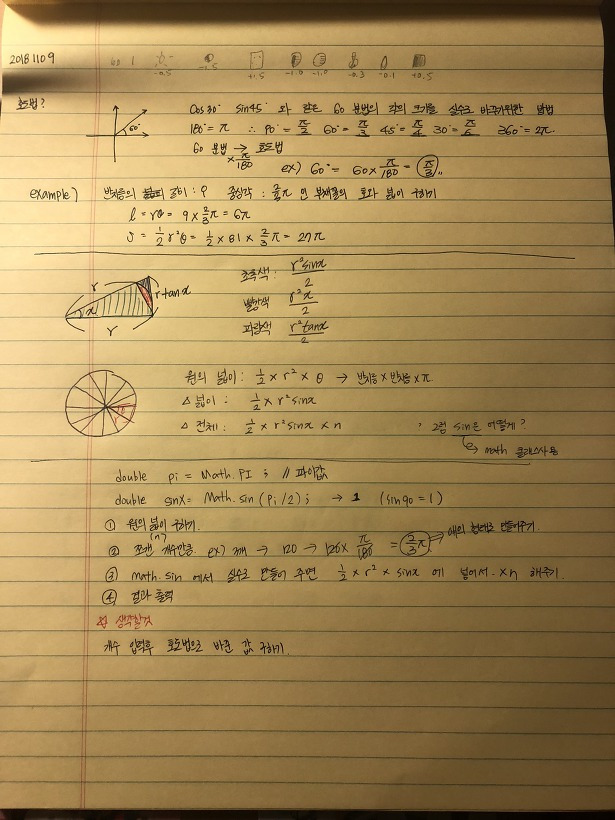 20181109
60 1
-0.5 -1.5 +1.5 -1.0 -1.0 -0.3 -0.1 +0.5
호도법?
60°
Cos30° sin45° 와 같은 60분법의 각의 크기를 실수로 바꾸기위한 방법
180° = π ∴ 90° = π/2 60° = π/3 45° = π/4 30° = π/6 360° = 2π.
60 분법 → 호도법
× π/180
ex) 60° = 60 × π/180 = π/3
example) 반지름의 길이 : 9 중심각 : 2/3π 인 부채꼴의 호와 넓이 구하기
l = rθ = 9 × 2/3π = 6π
S = 1/2 r²θ = 1/2 × 81 × 2/3π = 27π
r x r r tanx
초록색 : r²sinx/2
빨강색 r²x/2
파랑색 r²tanx/2
원의 넓이 : 1/2 × r² × θ → 반지름 × 반지름 × π.
△ 넓이 : 1/2 × r²sinx
△ 전체 : 1/2 × r²sinx × n
그럼 sin은 어떻게?
→ math 클래스사용
double pi = Math.PI ; // 파이값
double sinX = Math.sin (Pi/2) ; → 1 (sin90 = 1)
① 원의 넓이 구하기.
② 쪼갠 개수만큼 (n) ex) 3개 → 120 → 120 × π/180 = 2/3π ⇒ 얘의 형태로 만들어주기.
③ math.sin 에서 실수로 만들어 주면 1/2 × r² × sinx 에 넣어서 ×n 해주기.
④ 결과 출력
☆ 생각할것
개수 입력후 호도법으로 바꾼 값 구하기.